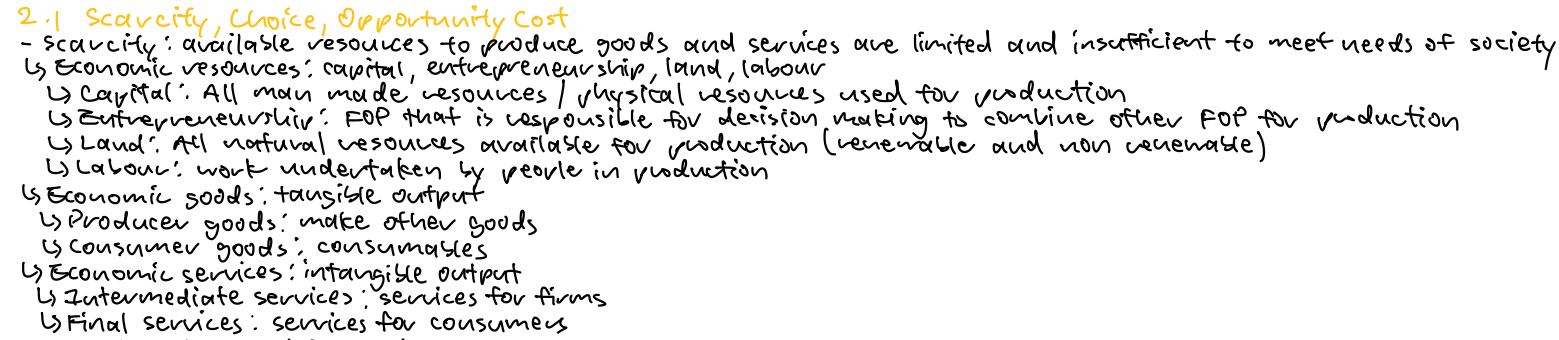 2.1 Scarcity, Choice, Opportunity Cost
- Scarcity: available resources to produce goods and services are limited and insufficient to meet needs of society
↳ Economic resources: capital, entrepreneurship, land, labour
↳ Capital: All man made resources / physical resources used for production
↳ Entrepreneurship: FOP that is responsible for decision making to combine other FOP for production
↳ Land: All natural resources available for production (renewable and non renewable)
↳ Labour: work undertaken by people in production
↳ Economic goods: tangible output
↳ Producer goods: make other goods
↳ Consumer goods: consumables
↳ Economic services: intangible output
↳ Intermediate services: services for firms
↳ Final services: services for consumers